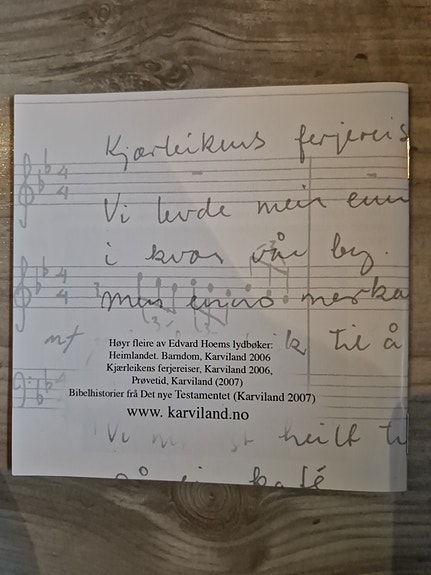 Kjærleikens ferjereis
Vi levde meir enn
i kvar vår by.
men merka
mf
til å
Høyr fleire av Edvard Hoems lydbøker:
Heimlandet. Barndom, Karviland 2006
Kjærleikens ferjereiser, Karviland 2006,
Prøvetid, Karviland (2007)
Bibelhistorier frå Det nye Testamentet (Karviland 2007)
www. karviland.no
Vi heilt ti
på ein kafé